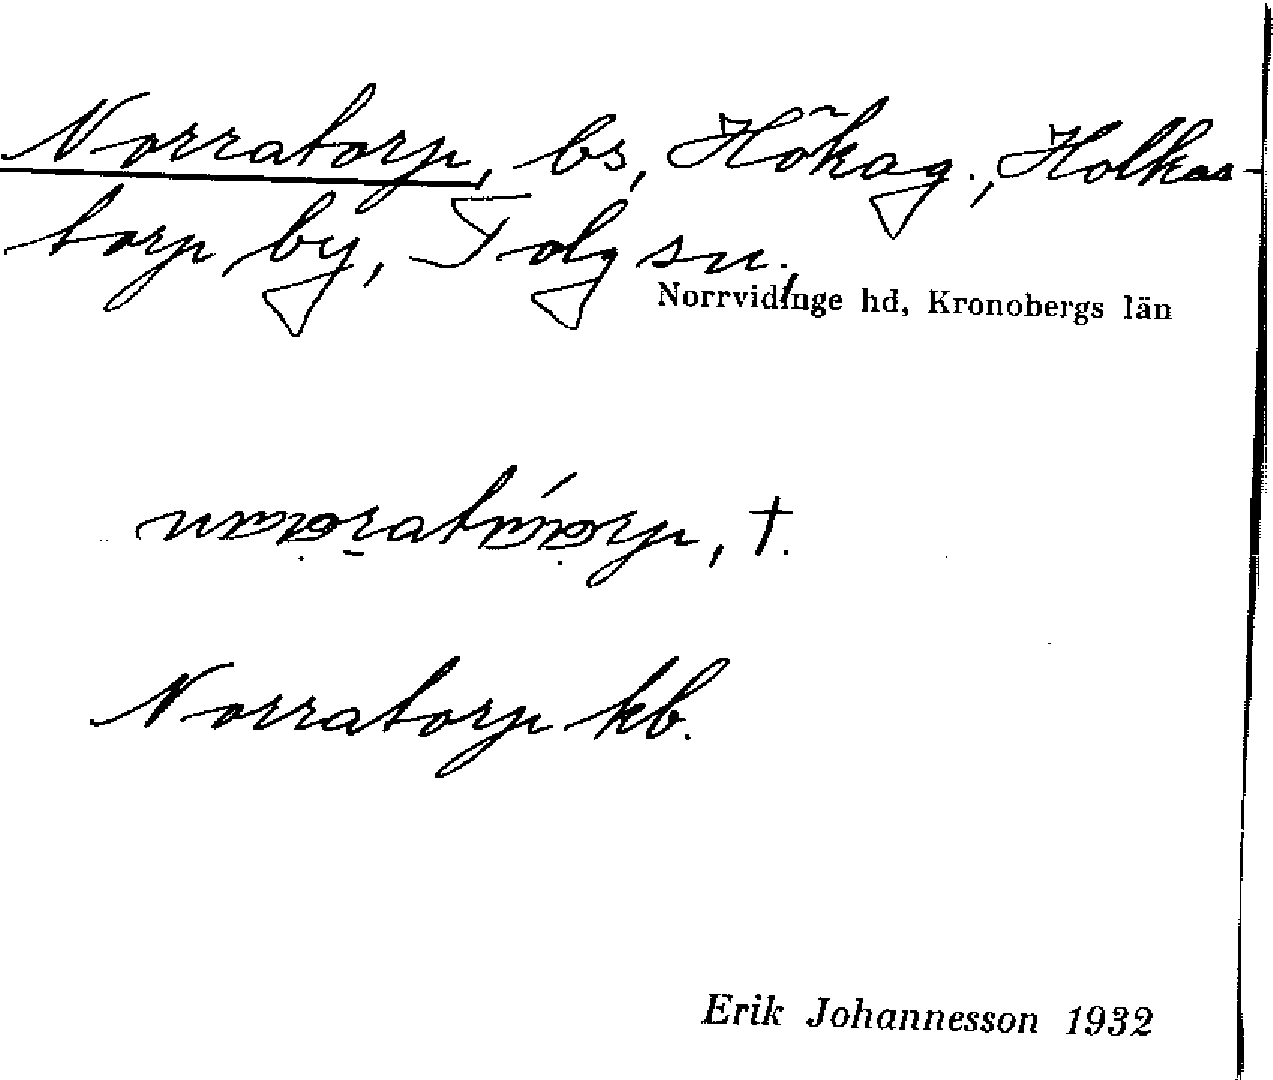 Norratorp, bs, Hökag., Holkas-
torp by, Tolg sn.,
Norrvidinge hd, Kronobergs län
, †.
Norratorp kb.
Erik Johannesson 1932